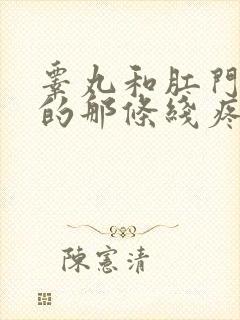 睾丸和肛門
的那條綫疼
陳憲清